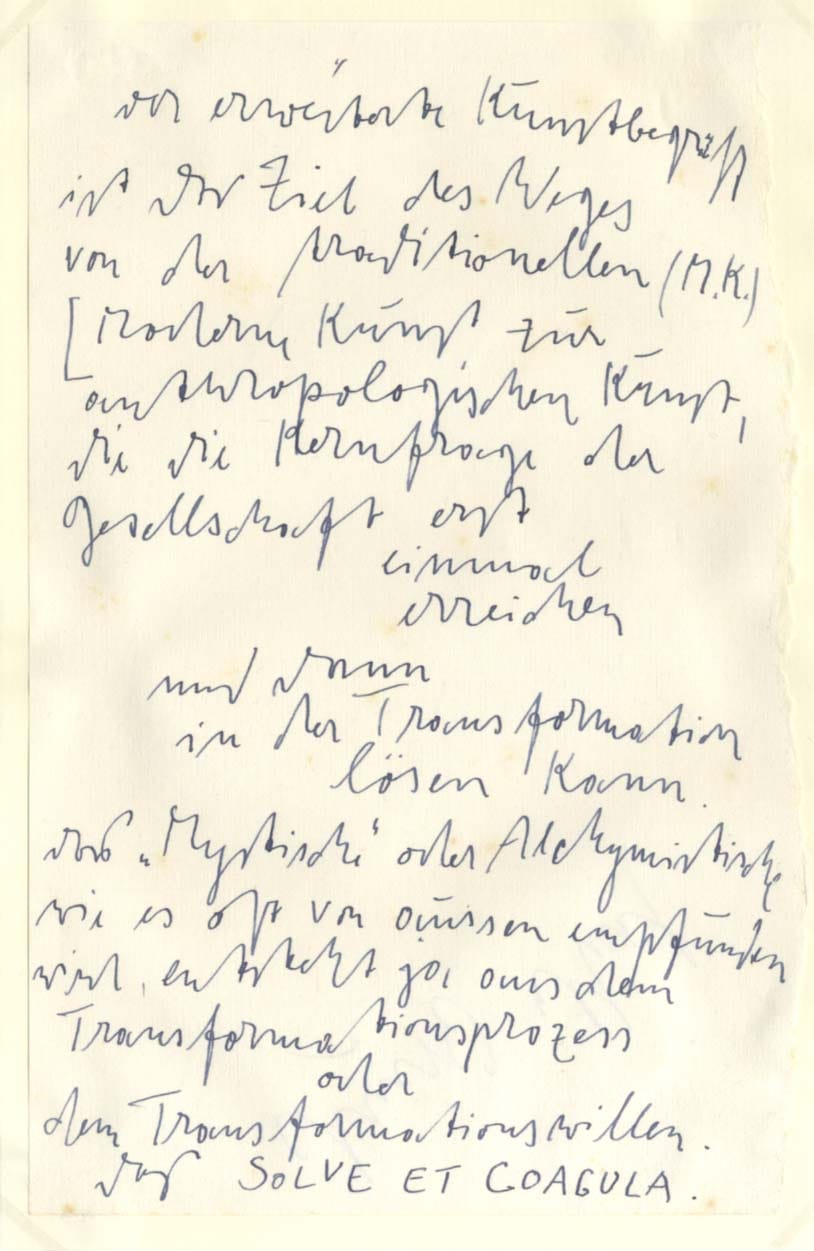 der erweiterte Kunstbegriff
ist das Ziel des Weges
von der traditionellen (M.K.)
[Moderne Kunst zur
anthropologischen Kunst,
die die Kernfrage der
Gesellschaft erst
einmal
erreichen
und dann
in der Transformation
lösen kann.
das „Mystische" oder Alchymistische
wie es oft von aussen empfunden
wird, entsteht ja aus dem
Transformationsprozess
oder
dem Transformationswillen.
das SOLVE ET COAGULA.